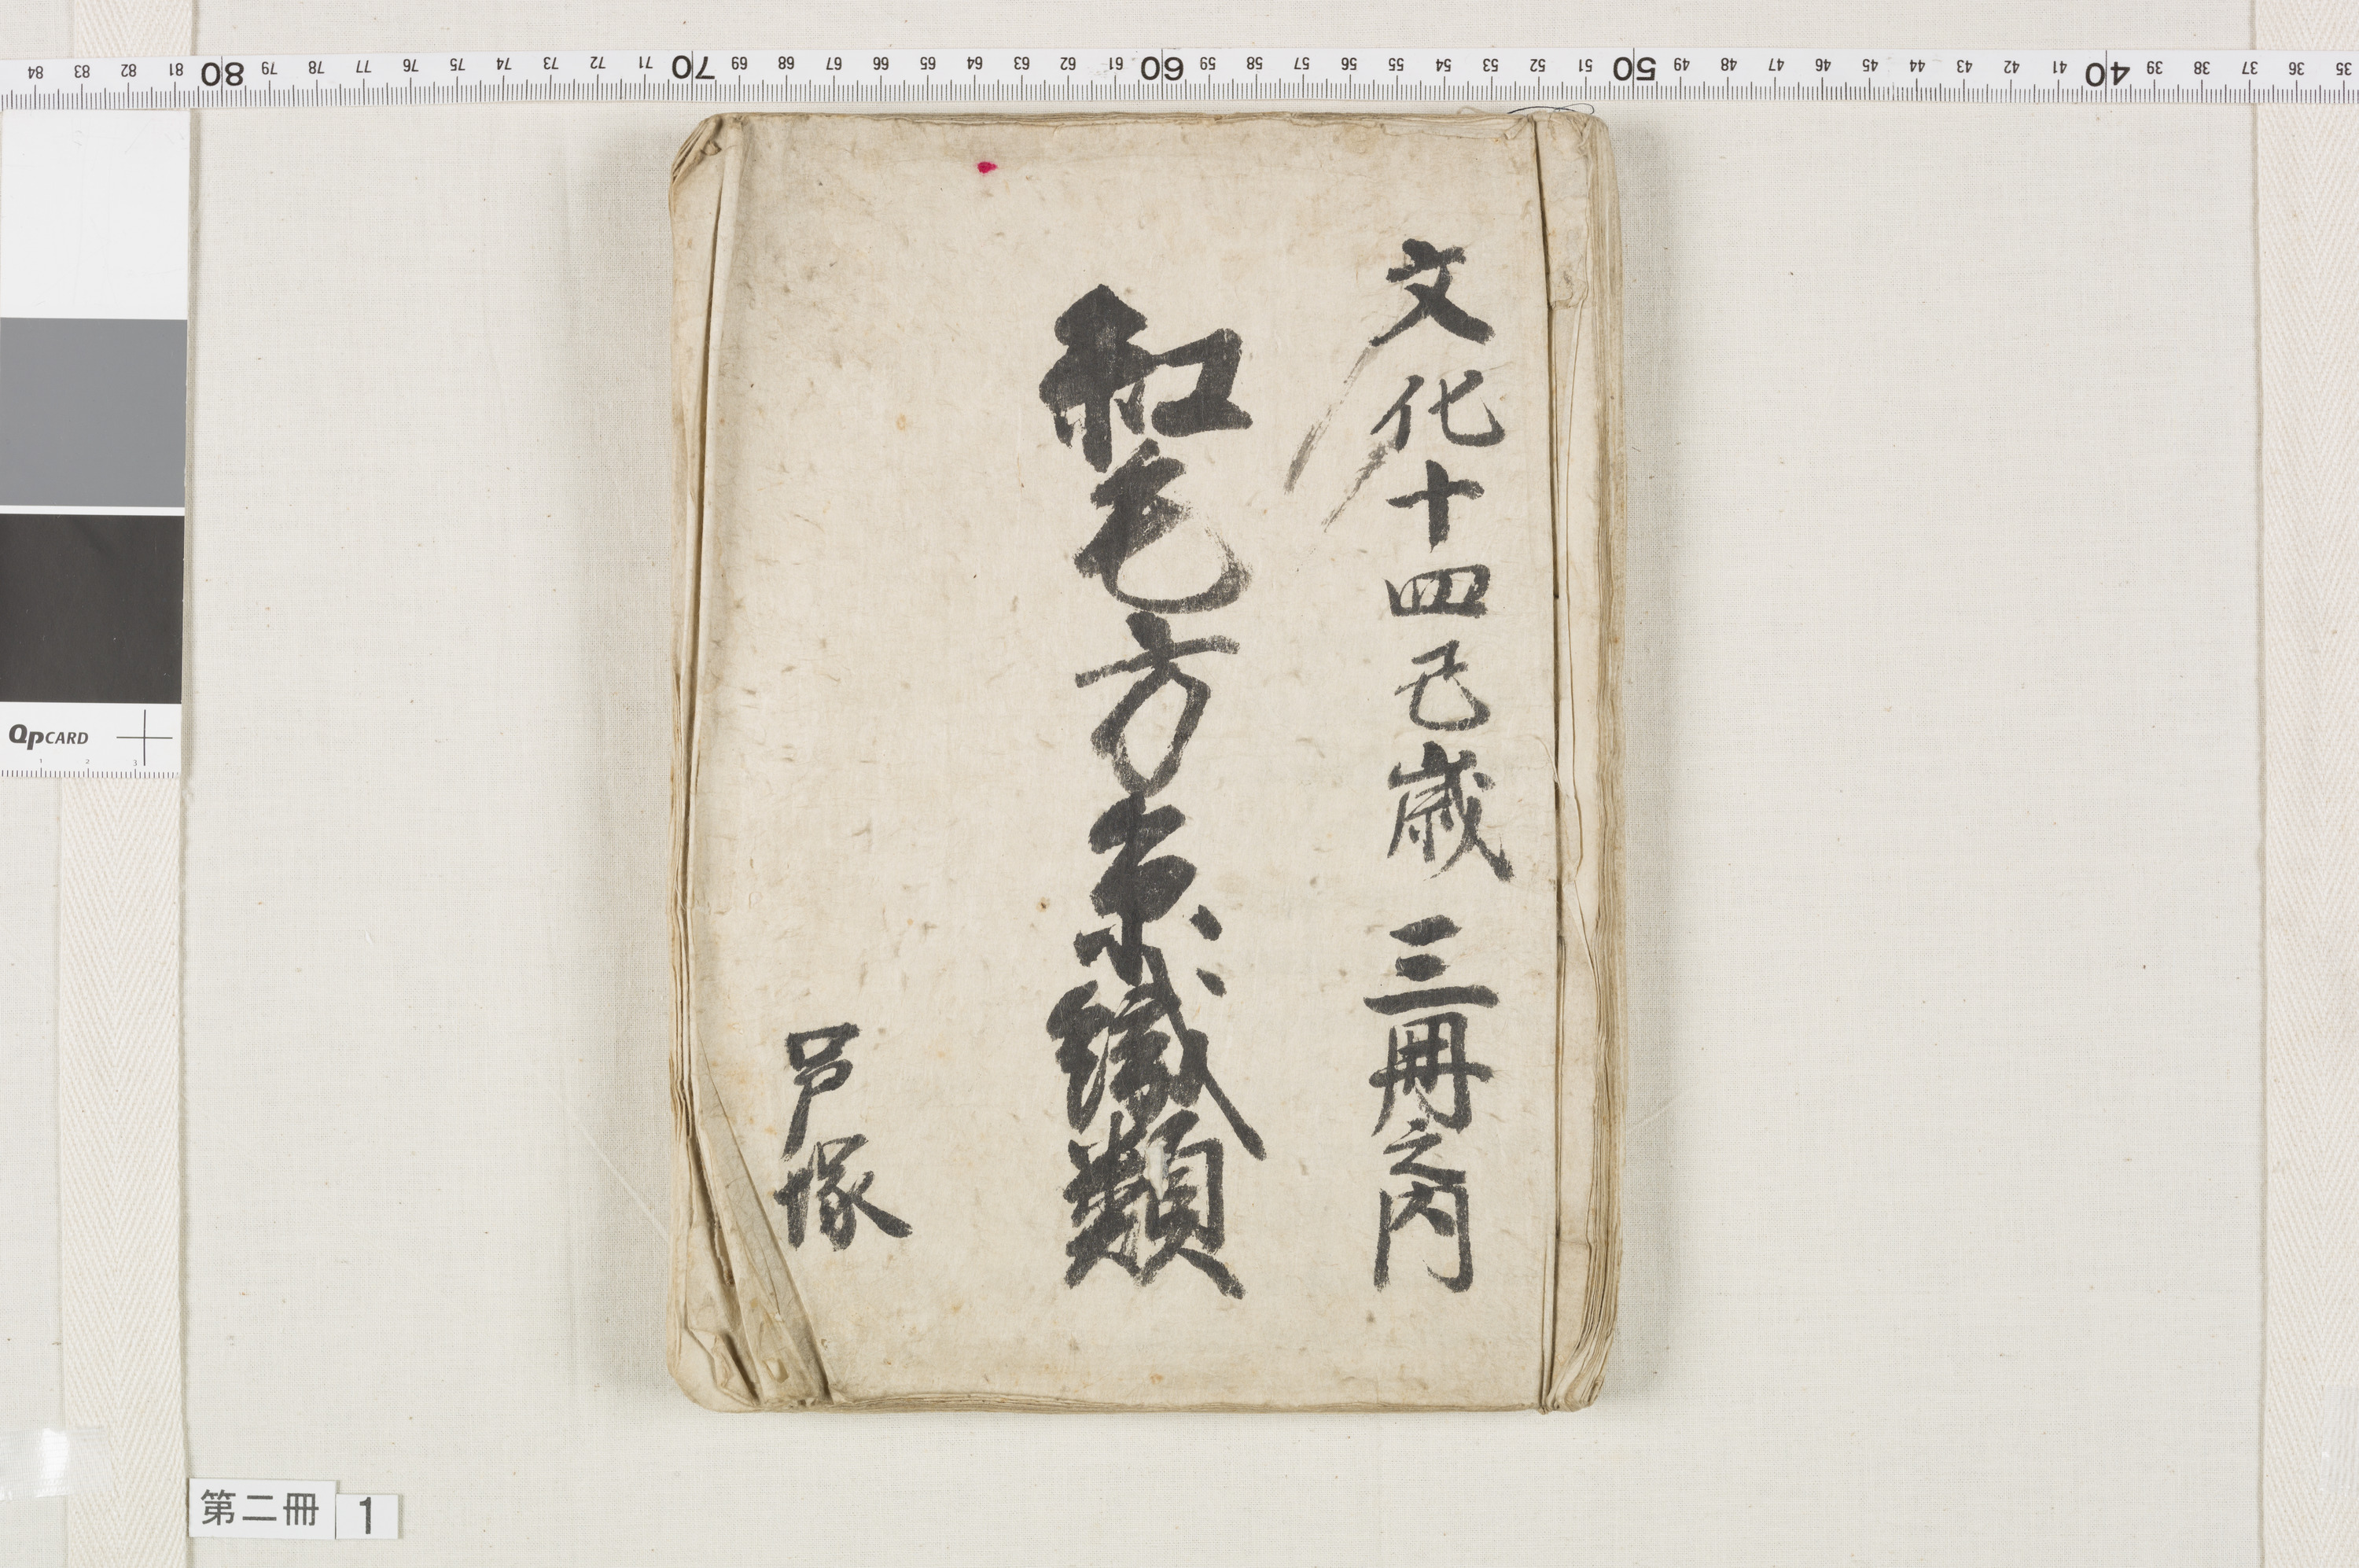 84 83 82 81 80 79 78 77 76 75 74 73 72 71 70 69 68 67 66 65 64 63 62 61 60 59 58 57 56 55 54 53 52 51 50 49 48 47 46 45 44 43 42 41 40 39 38 37 36 35
文化十四丑歳 三冊之内
紅毛方糸織類
戸塚
QPCARD
1 2 3
第二冊 1